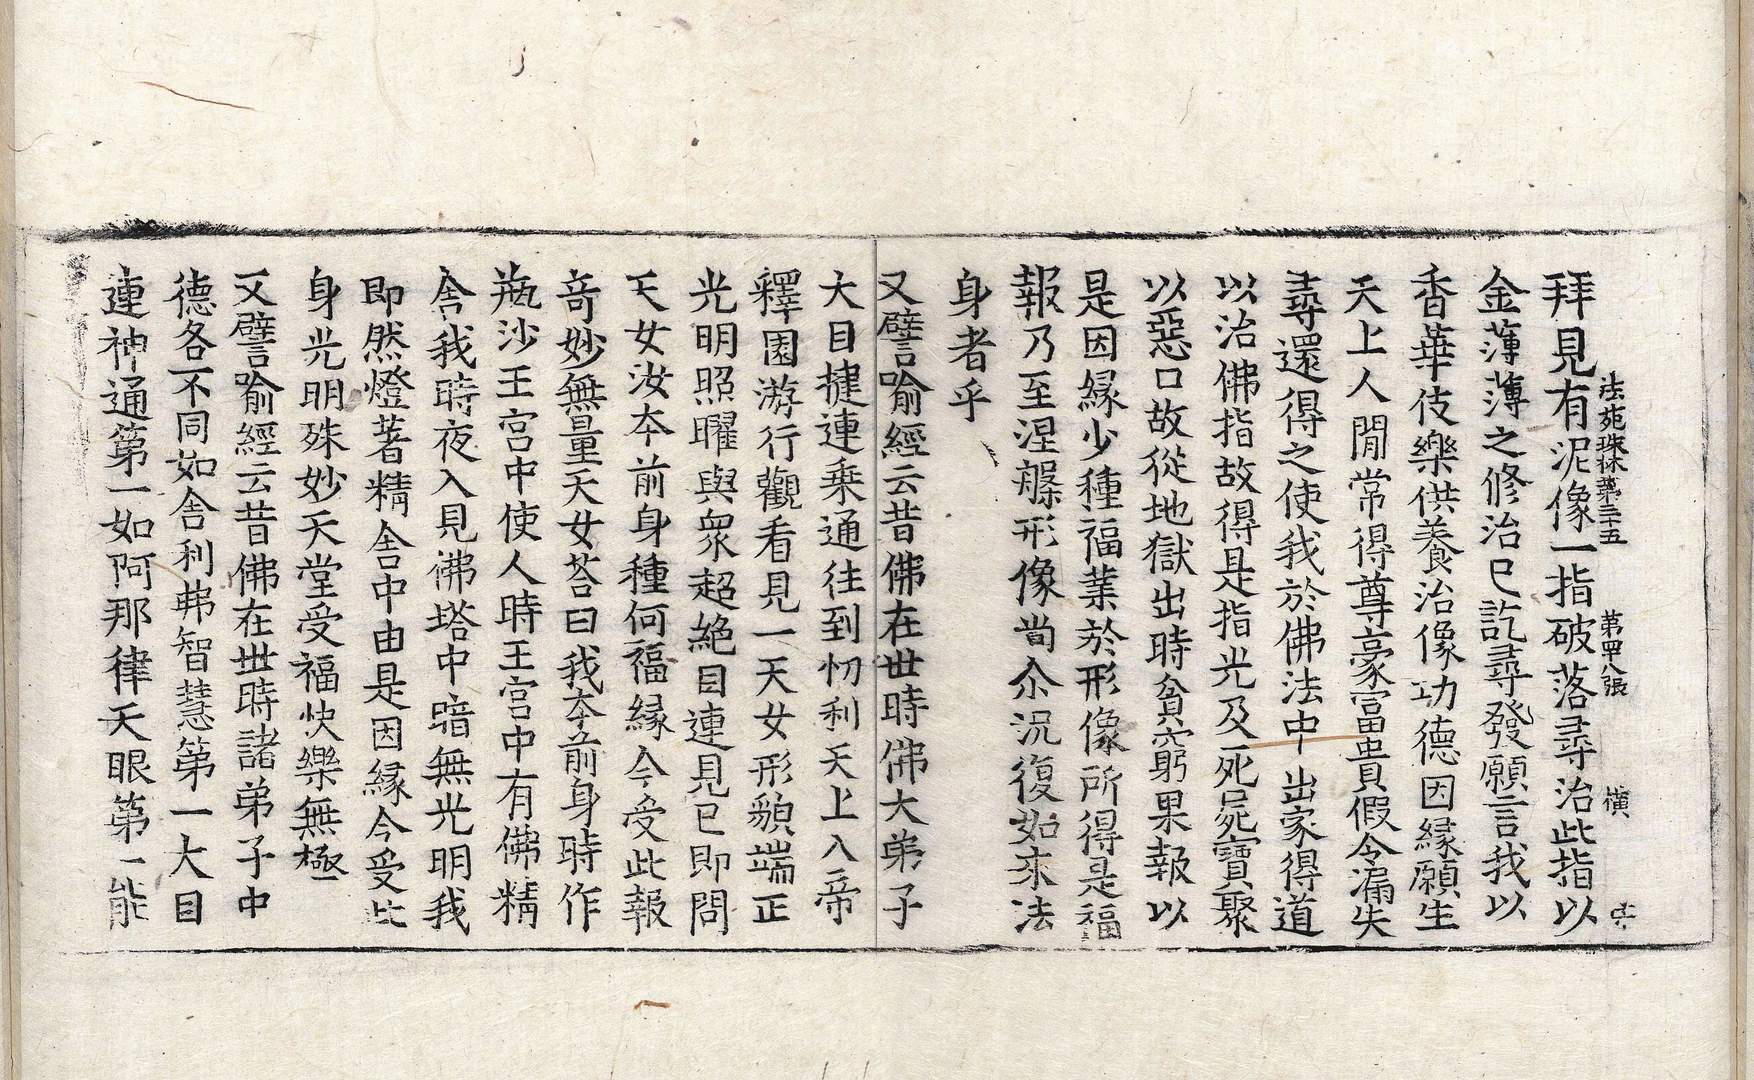 法苑珠林第三十五　第四八張　橫
拜見有泥像一指破落尋治此指以
金薄薄之修治已訖尋發願言我以
香華伎樂供養治像功德因緣願生
天上人閒常得尊豪富貴假令漏失
尋還得之使我於佛法中出家得道
以治佛指故得是指光及死屍寶聚
以惡口故從地獄出時貧窮果報以
是因緣少種福業於形像所得是福
報乃至涅槃形像尚尒況復如来法
身者乎
又譬喻經云昔佛在世時佛大弟子
大目揵連乗通往到忉利天上入帝
釋園游行觀看見一天女形貌端正
光明照曜與衆超絶目連見已即問
天女汝夲前身種何福緣今受此報
竒妙無量天女荅曰我夲前身時作
瓶沙王宫中使人時王宫中有佛精
舍我時夜入見佛塔中暗無光明我
即然燈著精舍中由是因緣今受此
身光明殊妙天堂受福快樂無極
又譬喻經云昔佛在世時諸弟子中
德各不同如舎利弗智慧第一大目
連神通第一如阿那律天眼第一能